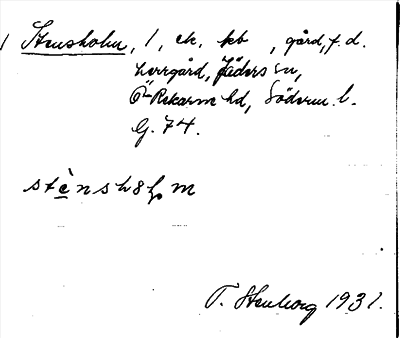 Stensholm, 1, ek. kb, gård, f.d.
herrgård, Jäders sn,
Ö-Rekarne hd, Söderm. l.
G. 74.
T. Stenborg 1931.